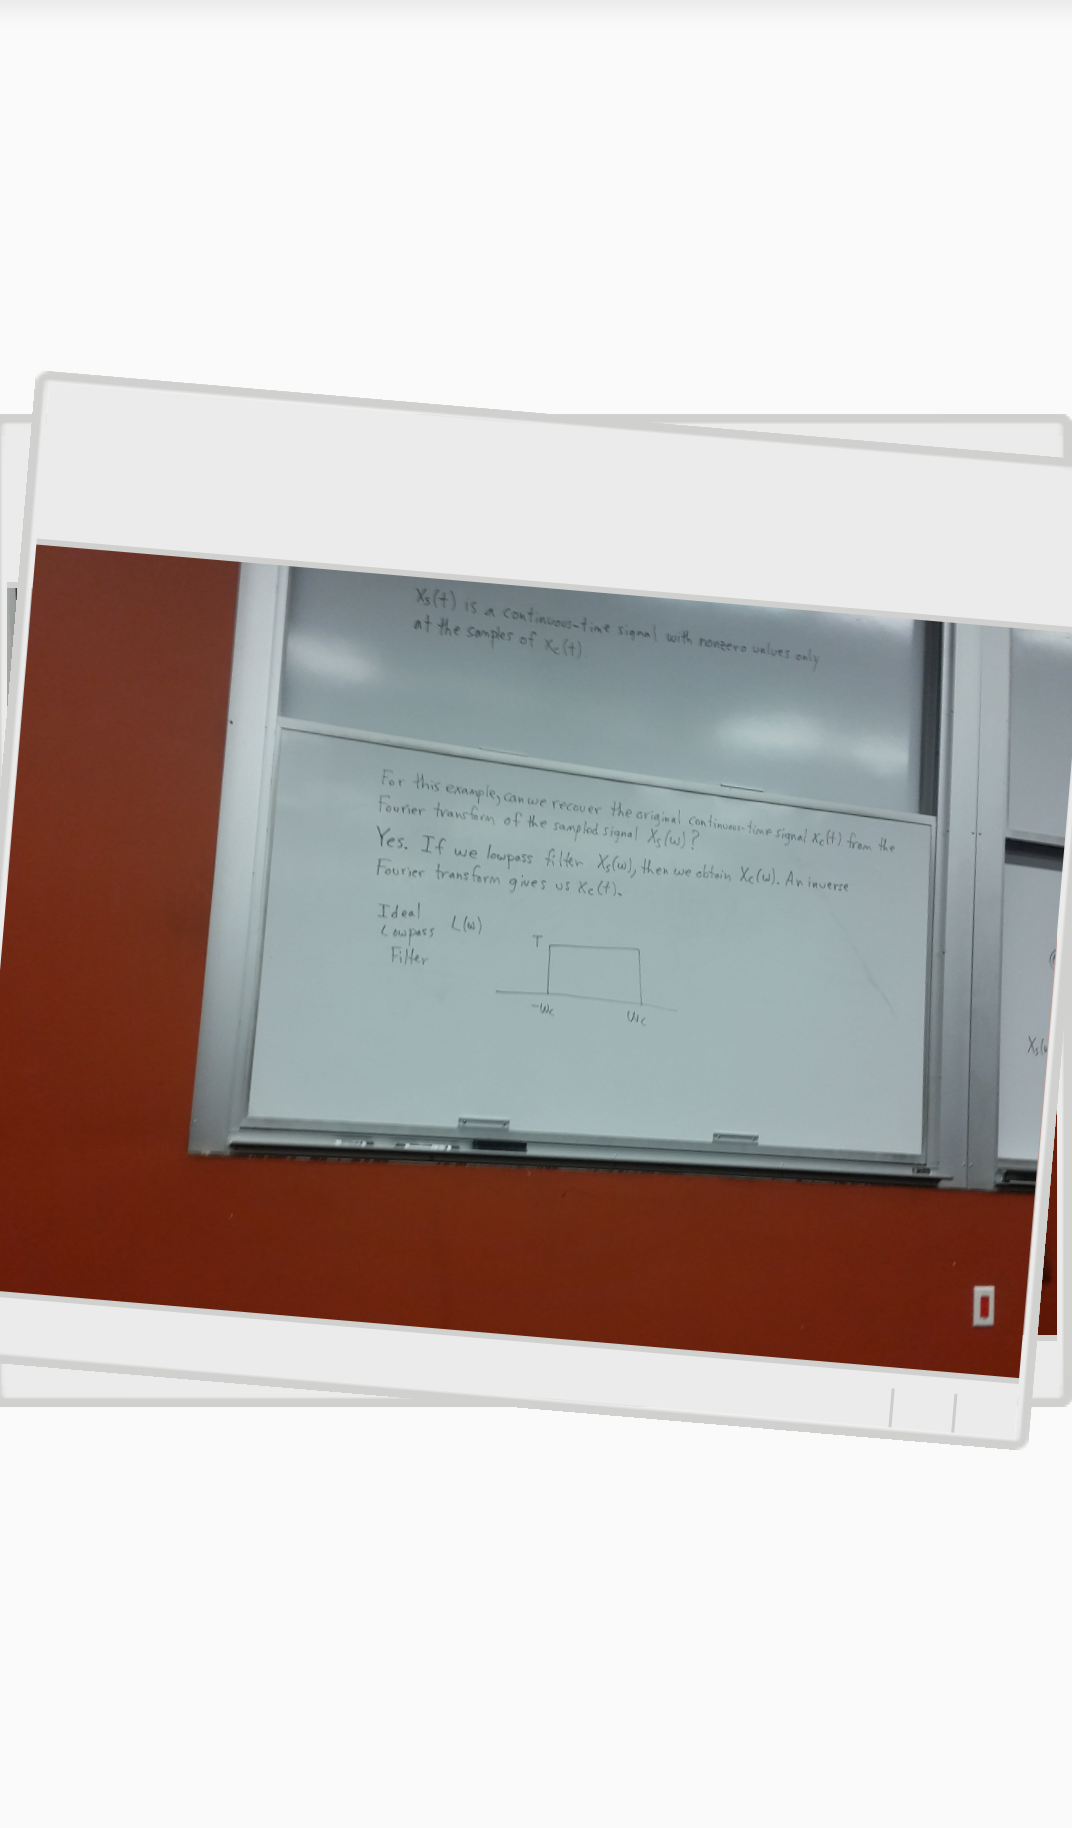 Xs(t) is a continuous-time signal with nonzero values only
at the samples of Xc(t)
For this example, can we recover the original continuous-time signal Xc(t) from the
Fourier transform of the sampled signal Xs(ω)?
Yes. If we lowpass filter Xs(ω), then we obtain Xc(ω). An inverse
Fourier transform gives us Xc(t).
Ideal
Lowpass L(ω)
Filter
T
-ωc ωc
Xs(